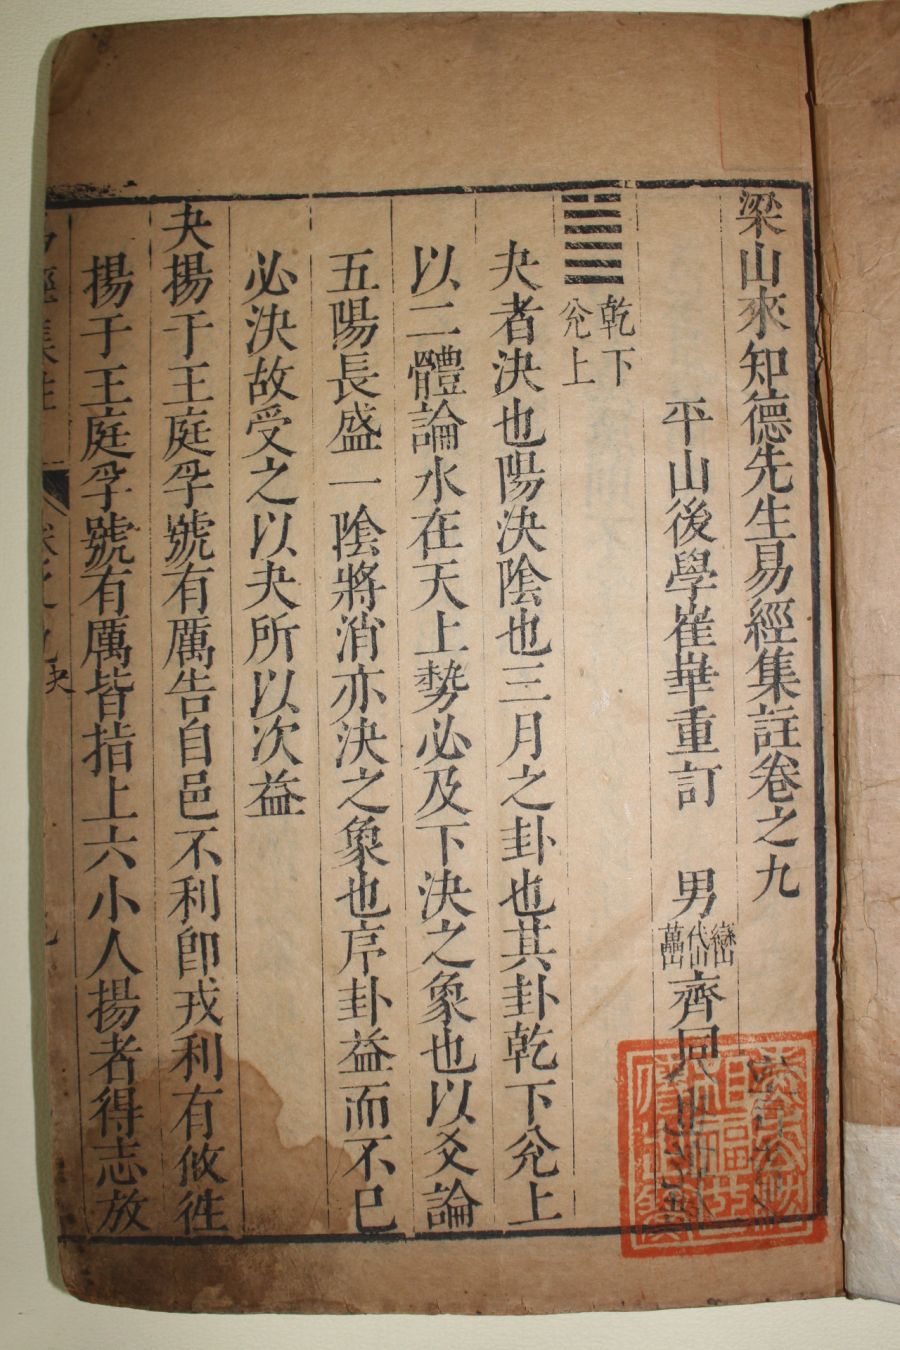 梁山來知德先生易經集註卷之九
平山後學崔華重訂 男 巒岱萬 齊同
䷪ 乾下
兌上
夬者決也陽決陰也三月之卦也其卦乾下兌上
以二體論水在天上勢必及下決之象也以爻論
五陽長盛一陰將消亦決之象也序卦益而不已
必決故受之以夬所以次益
夬揚于王庭孚號有厲告自邑不利卽戎利有攸往
揚于王庭孚號有厲皆指上六小人揚者得志放